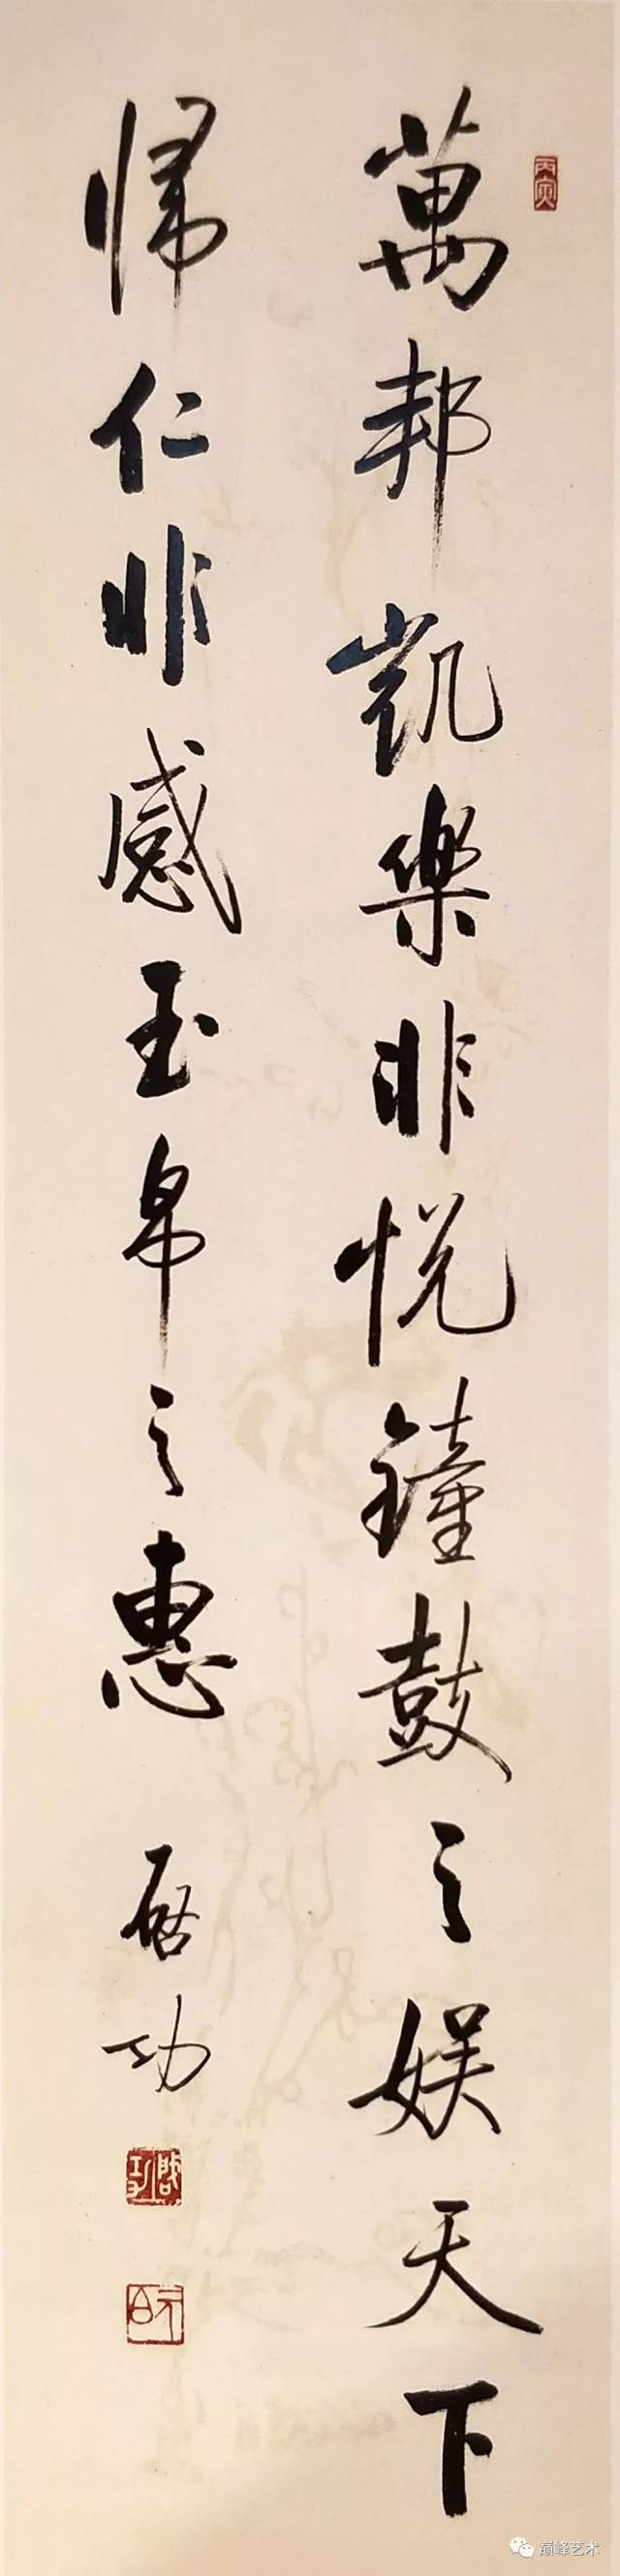 丙寅
萬邦凱樂非悦鐘鼓之娱天下
歸仁非感玉帛之惠
啟功
巅峰艺术